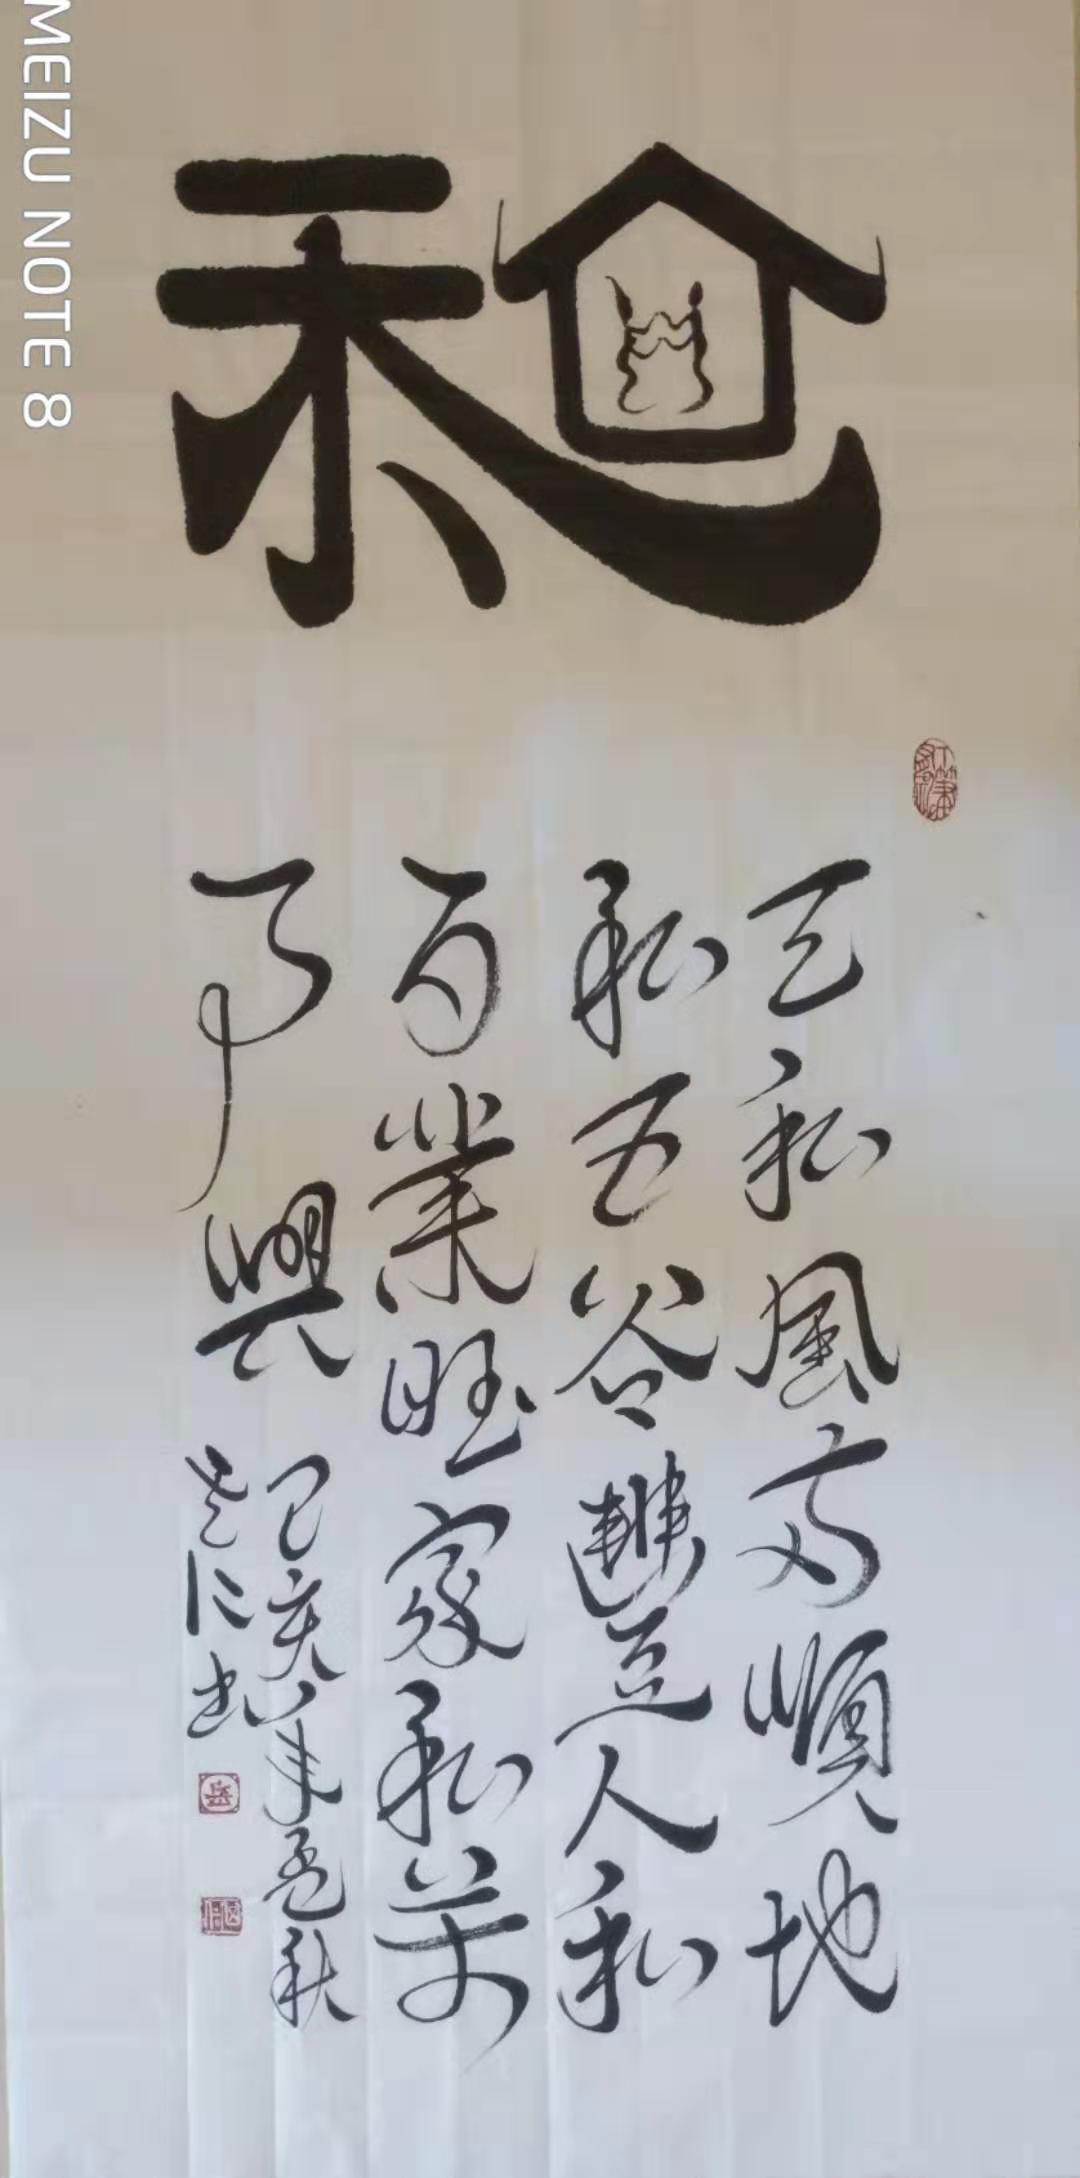 和
天和風雨順地
和五谷豐足人和
百業旺家和萬
事興
己亥年孟秋
岳仁书
MEIZU NOTE 8